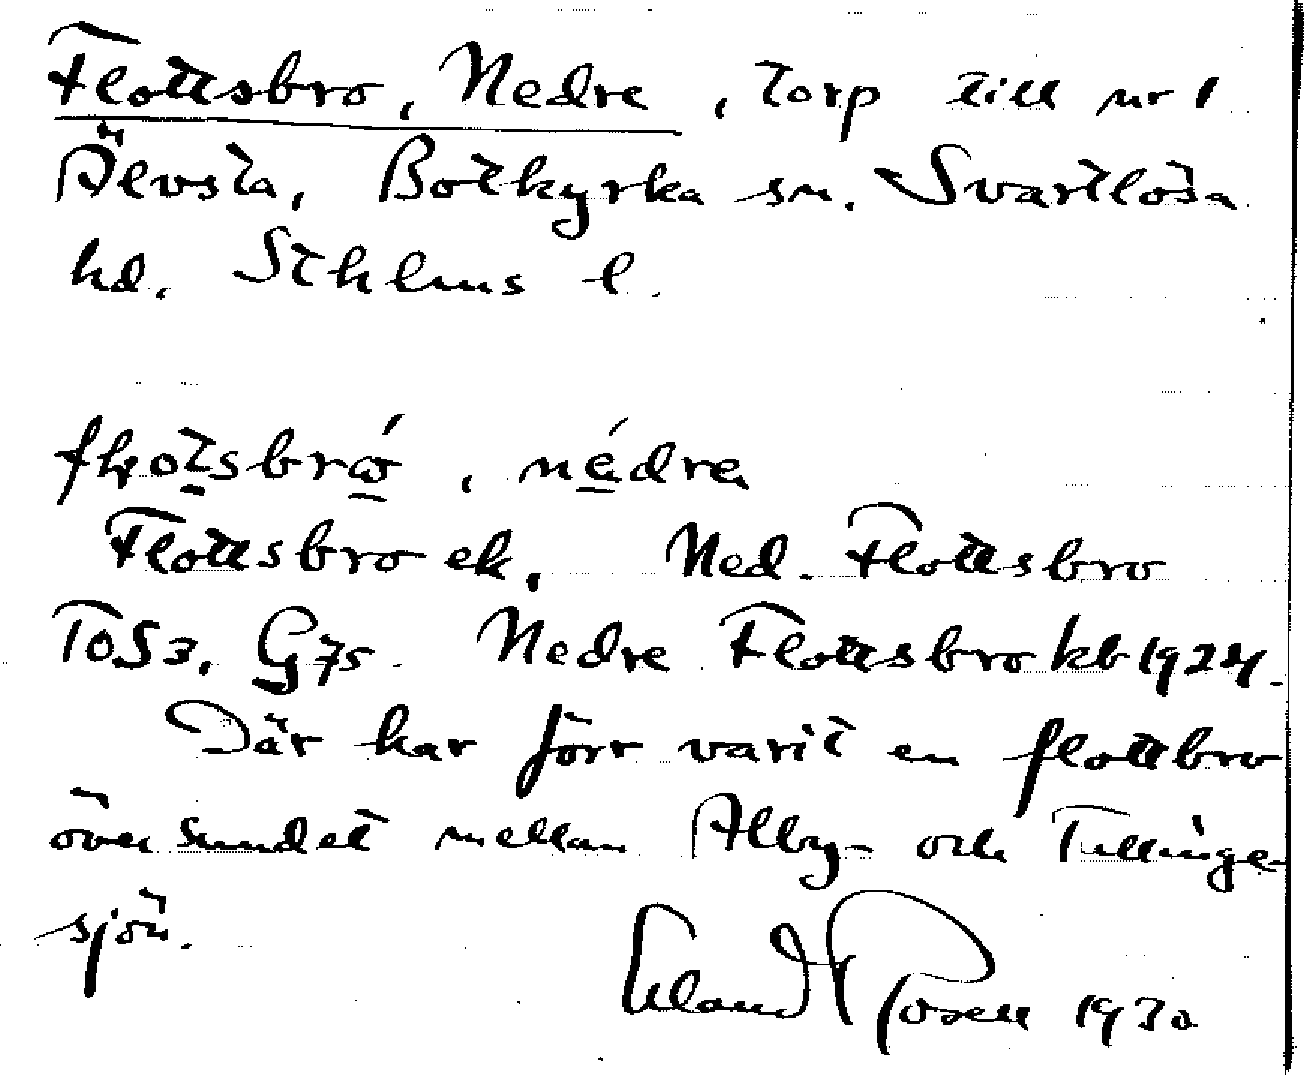 Flottsbro, Nedre, torp till nr 1
Älvsta, Botkyrka sn. Svartlösa
hd. Sthlms l.
nédre
Flottsbro ek. Ned. Flottsbro
Top53, G75. Nedre Flottsbro kb 1924.
Där har förr varit en flottbro
över sundet mellan Alby- och Tullinge-
sjön.
Erland Rosell 1930